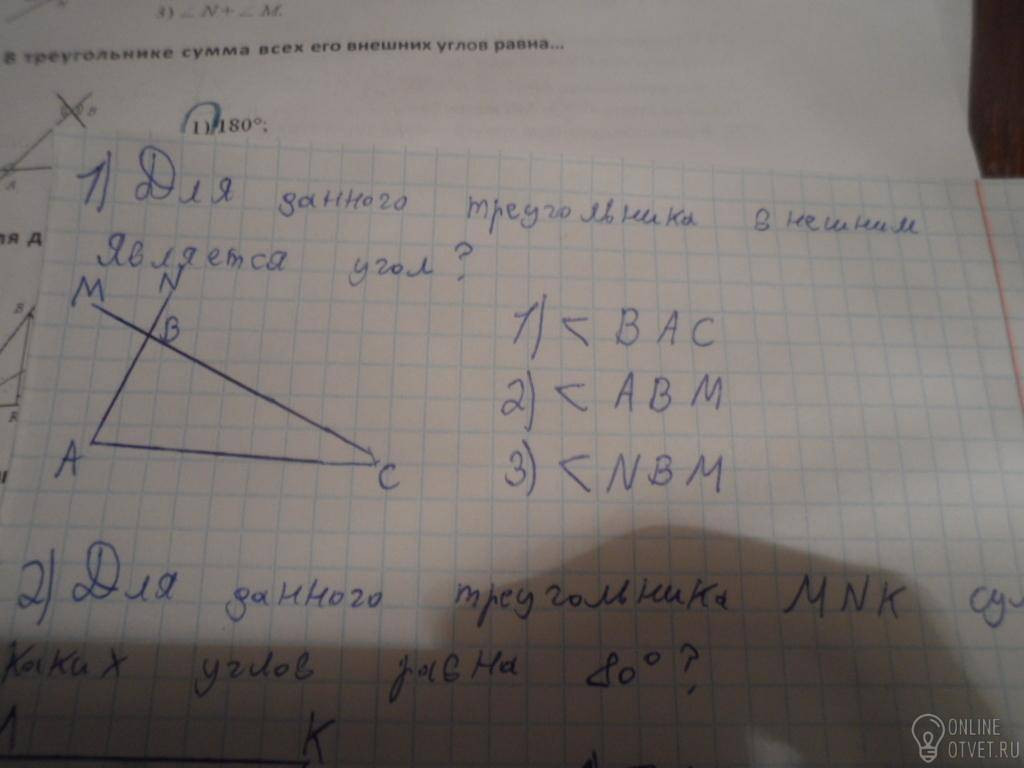 3) ∠N + ∠M.
В треугольнике сумма всех его внешних углов равна...
1) 180°;
A
1) Для данного треугольника внешним
является угол?
M N
B
A
C
1) < BAC
2) < ABM
3) < NBM
2) Для данного треугольника MNK
каких углов равна 80°?
K
ONLINE
OTVET.RU